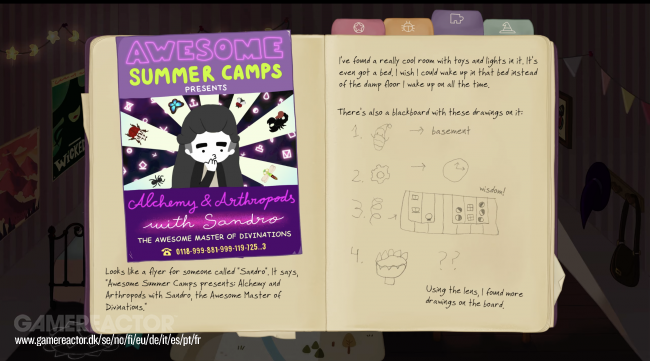 AWESOME
SUMMER CAMPS
PRESENTS
Alchemy & Arthropods
with Sandro
THE AWESOME MASTER OF DIVINATIONS
☎ 0118-999-881-999-119-725...3
Looks like a flyer for someone called "Sandro". It says,
"Awesome Summer Camps presents: Alchemy and
Arthropods with Sandro, the Awesome Master of
Divinations."
I've found a really cool room with toys and lights in it. It's
even got a bed. I wish I could wake up in that bed instead
of the damp floor I wake up on all the time.
There's also a blackboard with these drawings on it:
1. → basement
2. →
wisdom!
3.
4. ??
Using the lens, I found more
drawings on the board.
WICKED
GAMEREACTOR
www.gamereactor.dk/se/no/fi/eu/de/it/es/pt/fr